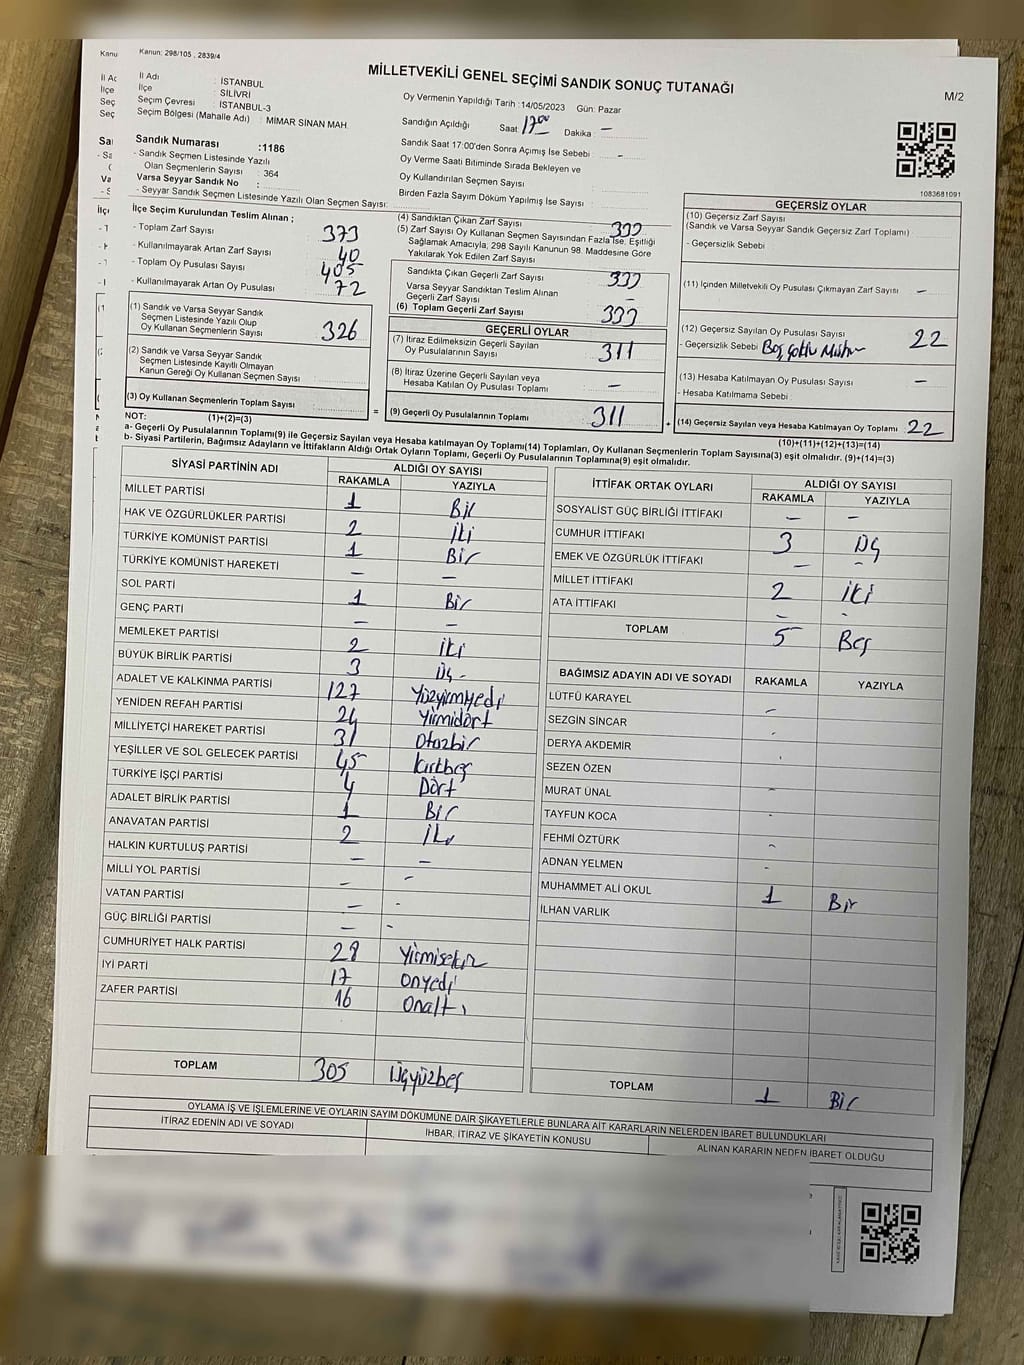 Kanun: 298/105 ; 2839/4
MİLLETVEKİLİ GENEL SEÇİMİ SANDIK SONUÇ TUTANAĞI
M/2
İl Adı : İSTANBUL
İlçe : SİLİVRİ
Seçim Çevresi : İSTANBUL-3
Seçim Bölgesi (Mahalle Adı) : MİMAR SİNAN MAH
Sandık Numarası :1186
- Sandık Seçmen Listesinde Yazılı
Olan Seçmenlerin Sayısı : 364
Varsa Seyyar Sandık No :
- Seyyar Sandık Seçmen Listesinde Yazılı Olan Seçmen Sayısı:
Oy Vermenin Yapıldığı Tarih :14/05/2023 Gün: Pazar
Sandığın Açıldığı Saat: 17 00 Dakika : -
Sandık Saat 17:00'den Sonra Açılmış İse Sebebi : -
Oy Verme Saati Bitiminde Sırada Bekleyen ve
Oy Kullandırılan Seçmen Sayısı :
Birden Fazla Sayım Döküm Yapılmış İse Sayısı :
1083681091
İlçe Seçim Kurulundan Teslim Alınan ;
- Toplam Zarf Sayısı : 373
- Kullanılmayarak Artan Zarf Sayısı : 40
- Toplam Oy Pusulası Sayısı : 405
- Kullanılmayarak Artan Oy Pusulası : 72
(1) Sandık ve Varsa Seyyar Sandık
Seçmen Listesinde Yazılı Olup
Oy Kullanan Seçmenlerin Sayısı : 326
(2) Sandık ve Varsa Seyyar Sandık
Seçmen Listesinde Kayıtlı Olmayan
Kanun Gereği Oy Kullanan Seçmen Sayısı :
(3) Oy Kullanan Seçmenlerin Toplam Sayısı :
(4) Sandıktan Çıkan Zarf Sayısı : 333
(5) Zarf Sayısı Oy Kullanan Seçmen Sayısından Fazla İse, Eşitliği
Sağlamak Amacıyla, 298 Sayılı Kanunun 98. Maddesine Göre
Yakılarak Yok Edilen Zarf Sayısı :
Sandıkta Çıkan Geçerli Zarf Sayısı : 333
Varsa Seyyar Sandıktan Teslim Alınan
Geçerli Zarf Sayısı : -
(6) Toplam Geçerli Zarf Sayısı : 333
GEÇERLİ OYLAR
(7) İtiraz Edilmeksizin Geçerli Sayılan
Oy Pusulalarının Sayısı : 311
(8) İtiraz Üzerine Geçerli Sayılan veya
Hesaba Katılan Oy Pusulası Toplamı : -
= (9) Geçerli Oy Pusulalarının Toplamı : 311 +
GEÇERSİZ OYLAR
(10) Geçersiz Zarf Sayısı
(Sandık ve Varsa Seyyar Sandık Geçersiz Zarf Toplamı) :
- Geçersizlik Sebebi :
(11) İçinden Milletvekili Oy Pusulası Çıkmayan Zarf Sayısı : -
(12) Geçersiz Sayılan Oy Pusulası Sayısı : 22
- Geçersizlik Sebebi :
(13) Hesaba Katılmayan Oy Pusulası Sayısı : -
- Hesaba Katılmama Sebebi :
(14) Geçersiz Sayılan veya Hesaba Katılmayan Oy Toplamı : 22
NOT: (1)+(2)=(3)
(10)+(11)+(12)+(13)=(14)
a- Geçerli Oy Pusulalarının Toplamı(9) ile Geçersiz Sayılan veya Hesaba katılmayan Oy Toplamı(14) Toplamları, Oy Kullanan Seçmenlerin Toplam Sayısına(3) eşit olmalıdır. (9)+(14)=(3)
b- Siyasi Partilerin, Bağımsız Adayların ve İttifakların Aldığı Ortak Oyların Toplamı, Geçerli Oy Pusulalarının Toplamına(9) eşit olmalıdır.
SİYASİ PARTİNİN ADI ALDIĞI OY SAYISI
RAKAMLA YAZIYLA
MİLLET PARTİSİ 1 Bir
HAK VE ÖZGÜRLÜKLER PARTİSİ 2 İki
TÜRKİYE KOMÜNİST PARTİSİ 1 Bir
TÜRKİYE KOMÜNİST HAREKETİ - -
SOL PARTİ 1 Bir
GENÇ PARTİ - -
MEMLEKET PARTİSİ 2 İki
BÜYÜK BİRLİK PARTİSİ 3 Üç -
ADALET VE KALKINMA PARTİSİ 127 Yüzyirmiyedi
YENİDEN REFAH PARTİSİ 24 Yirmidört
MİLLİYETÇİ HAREKET PARTİSİ 31 Otuzbir
YEŞİLLER VE SOL GELECEK PARTİSİ 45 Kırkbeş
TÜRKİYE İŞÇİ PARTİSİ 4 Dört
ADALET BİRLİK PARTİSİ 1 Bir
ANAVATAN PARTİSİ 2 İki
HALKIN KURTULUŞ PARTİSİ - -
MİLLİ YOL PARTİSİ - -
VATAN PARTİSİ - -
GÜÇ BİRLİĞİ PARTİSİ - -
CUMHURİYET HALK PARTİSİ 28 Yirmisekiz
İYİ PARTİ 17 Onyedi
ZAFER PARTİSİ 16 Onaltı
TOPLAM 305 Üçyüzbeş
İTTİFAK ORTAK OYLARI ALDIĞI OY SAYISI
RAKAMLA YAZIYLA
SOSYALİST GÜÇ BİRLİĞİ İTTİFAKI - -
CUMHUR İTTİFAKI 3 Üç
EMEK VE ÖZGÜRLÜK İTTİFAKI - -
MİLLET İTTİFAKI 2 İki
ATA İTTİFAKI - -
TOPLAM 5 Beş
BAĞIMSIZ ADAYIN ADI VE SOYADI RAKAMLA YAZIYLA
LÜTFÜ KARAYEL -
SEZGİN SİNCAR -
DERYA AKDEMİR
SEZEN ÖZEN
MURAT ÜNAL -
TAYFUN KOCA -
FEHMİ ÖZTÜRK -
ADNAN YELMEN -
MUHAMMET ALİ OKUL 1 Bir
İLHAN VARLIK
TOPLAM 1 Bir
OYLAMA İŞ VE İŞLEMLERİNE VE OYLARIN SAYIM DÖKÜMÜNE DAİR ŞİKAYETLERLE BUNLARA AİT KARARLARIN NELERDEN İBARET BULUNDUKLARI
İTİRAZ EDENİN ADI VE SOYADI İHBAR, İTİRAZ VE ŞİKAYETİN KONUSU ALINAN KARARIN NEDEN İBARET OLDUĞU